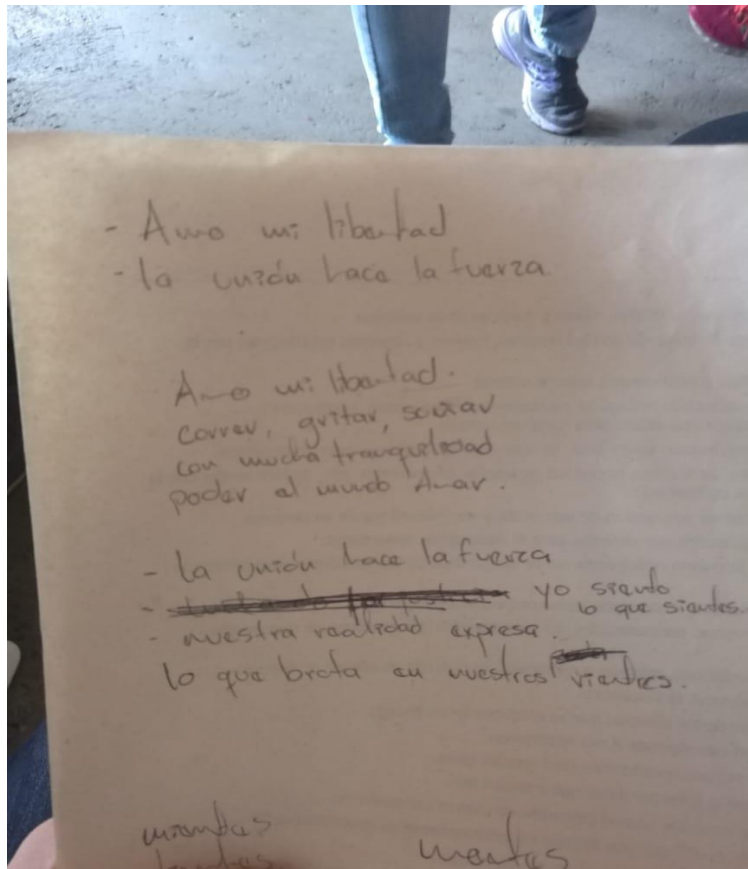 - Amo mi libertad
- la unión hace la fuerza
Amo mi libertad.
correr, gritar, soñar
con mucha tranquilidad
poder al mundo Amar.
- la unión hace la fuerza
- yo siento lo que sientes.
- nuestra realidad expresa.
lo que brota en nuestros vientres.
mientras
mentes